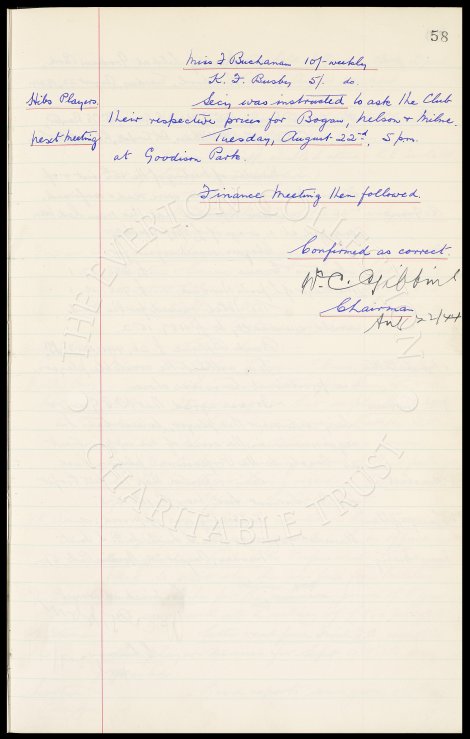 58
Miss F Buchanan 10/- weekly
K. F. Busby 5/- do
Hibs Players. Secy was instructed to ask the Club
their respective prices for Bogan, Nelson & Milne.
next meeting Tuesday, August 22nd, 5 pm.
at Goodison Park.
Finance Meeting then followed.
Confirmed as correct.
W. C. Gibbins
Chairman
Aug 22/44
THE EVERTON COLLECTION
CHARITABLE TRUST